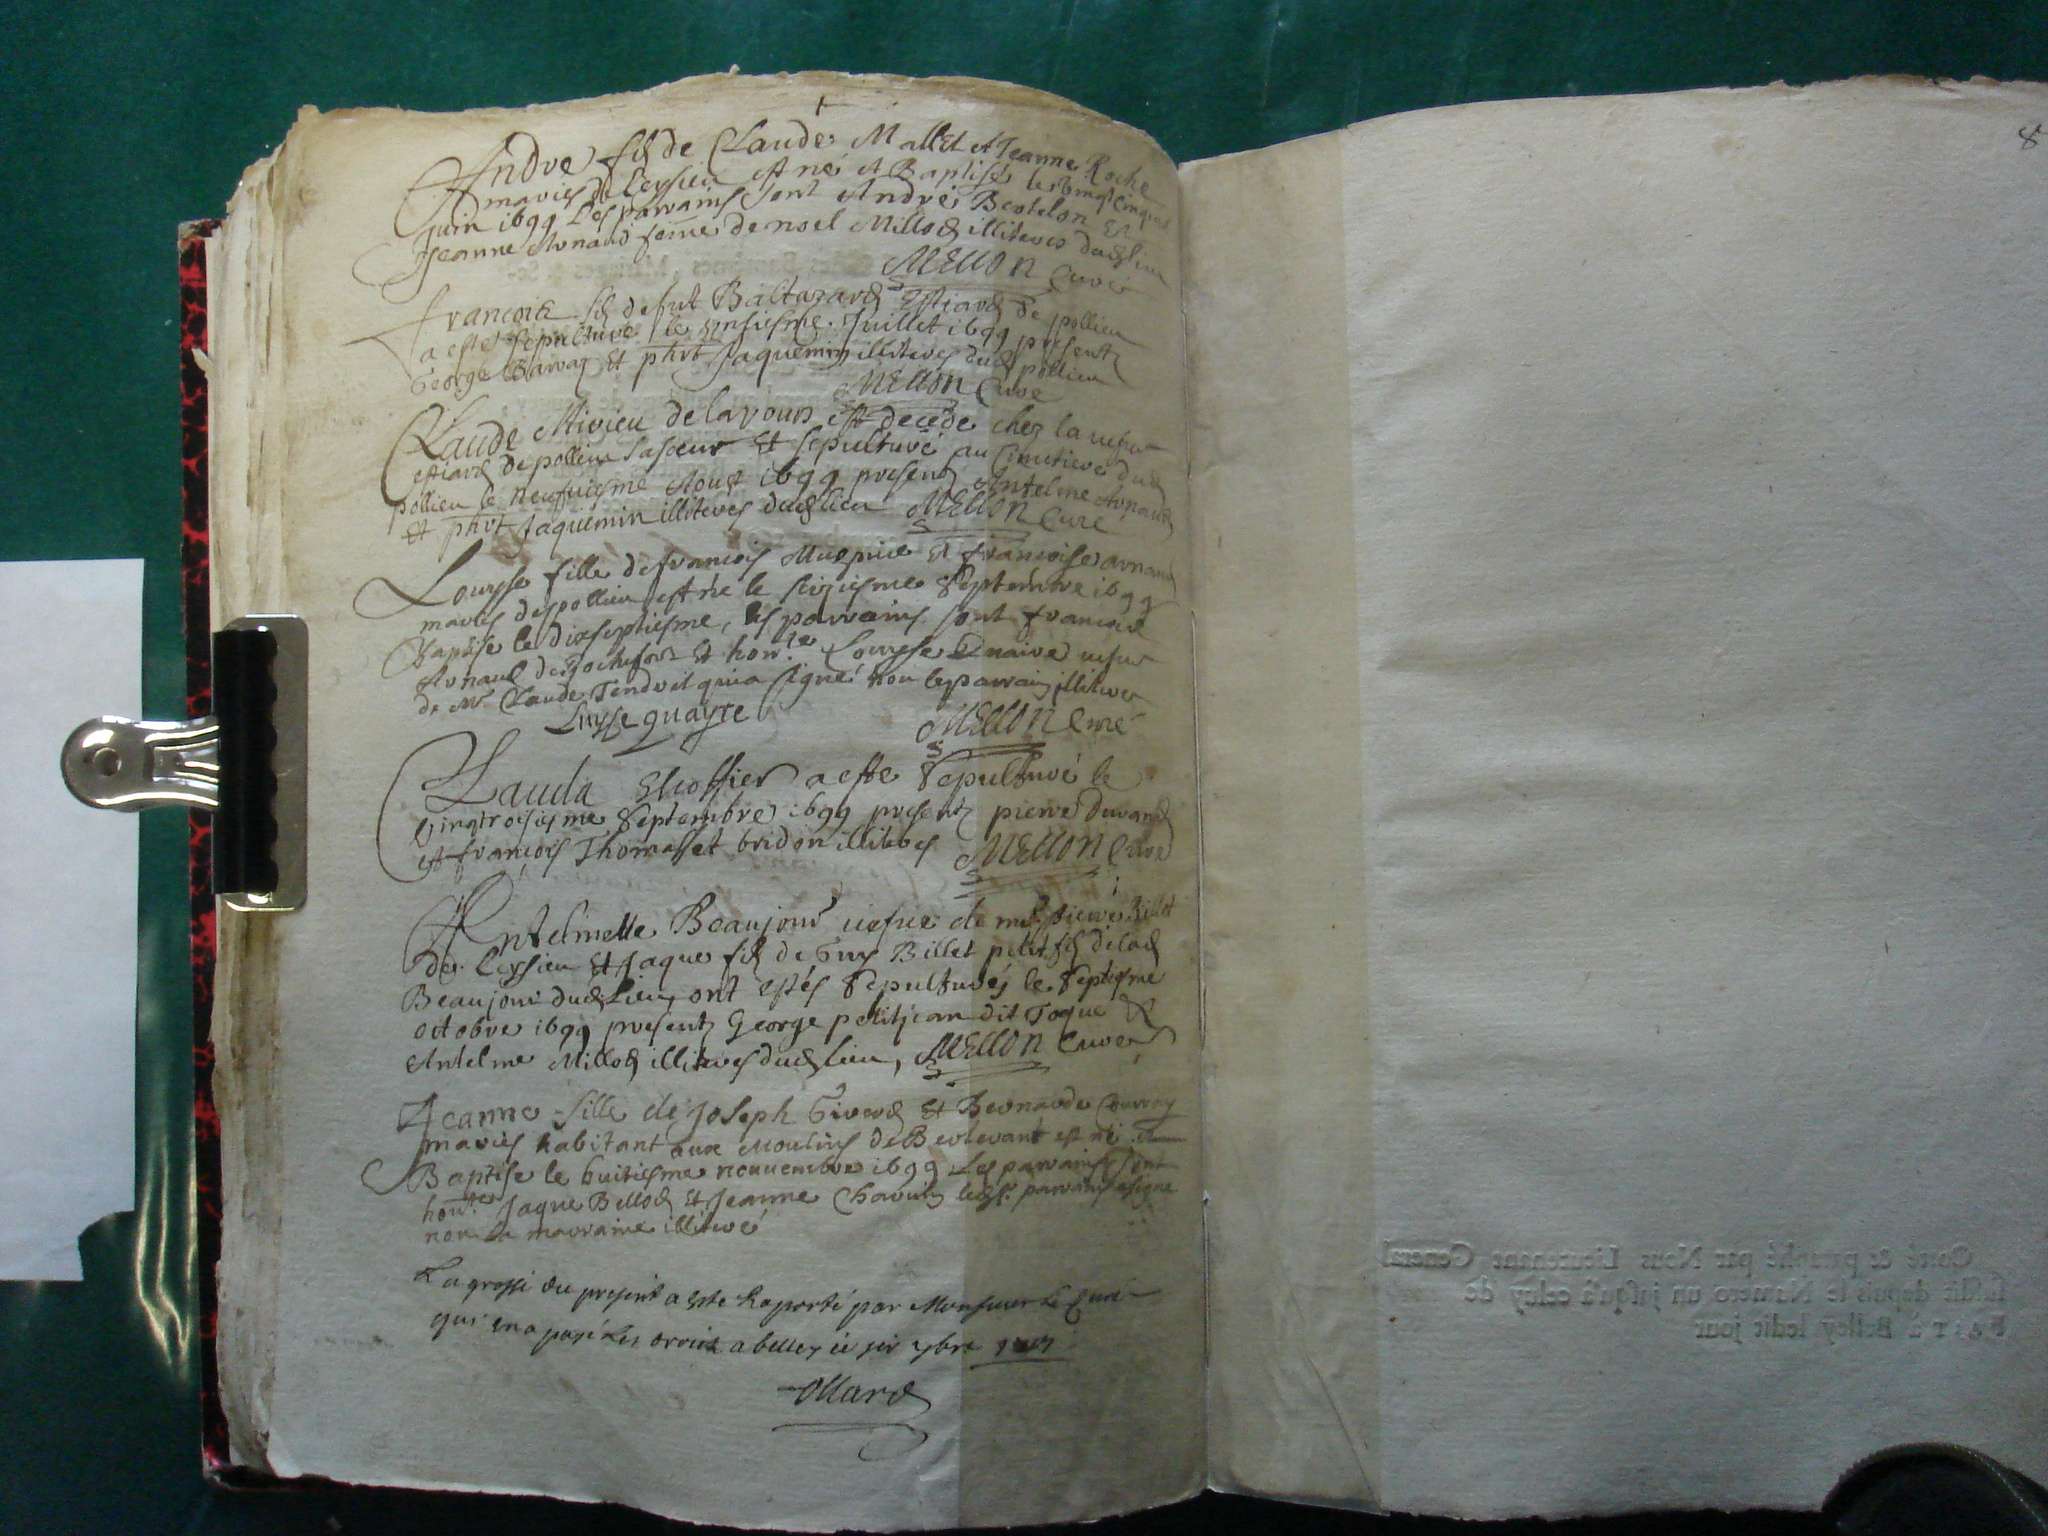 André fils de Claude Mallet et Jeanne Roche
mariés de Ceyssieu est né et Baptisé le vingt cinq
juin 1699 Les parrains sont André Bertelon Et
Jeanne Arnaud feme de noel Millod illiteres dud lieu
MELLON Curé
françois fils de fut Baltazard Estiard de pollieu
a esté sepulturé le onsiesme Juillet 1699 presentz
George Barraz Et phrt Jaquemin illiteres dud pollieu
MELLON Curé
Claude Mivieu de lavours est decede chez la vefve
estiard de pollieu sa soeur Et sepulturé au Cimetiere dud
pollieu le neufviesme Aoust 1699 presentz Antelme Arnaud
Et phrt Jaquemin illiteres dud lieu MELLON Curé
Louyse fille de francois et francoise arnaud
mariés de pollieu est née le seiziesme Septembre 1699
Baptise le dixseptiesme, les parrains sont francois
Arnaud de Rochefort Et honte. Louyse Quaire vefve
de Mr Claude Tendret qui a signé non le parrain illitere
Luyse quayre MELLON Curé
Clauda a esté Sepulturé le
vingtroisiesme Septembre 1699 presentz pierre Durand
et françois Thomasset bridon illiteres MELLON Curé
Antelmette Beaujour vefve de me. pierre Billet
de Ceyssieu Et Jaque fils de Guy Billet petit fils de lad
Beaujour dud Lieu ont estés Sepulturés le Septiesme
octobre 1699 presentz George petitjean dit Toque Et
Antelme Millod illiteres dud lieu, MELLON Curé
Jeanne fille de Joseph Girerd Et Bernarde Courroy
mariés habitant aux Moulins de Berlevant est né
Baptise le huitiesme nouvembre 1699 Les parrains sont
honte. Jaque Bellod Et Jeanne Chavin led sr. parrain a signé
non la marraine illiteré
La grosse du present a este Raporté par Monsieur Le Curé
qui en a payé Les droits a belley ce
Ollard
8
Coté & paraphé par Nous Lieutenant General
susdit depuis le Numero un jusqu'à celuy de
à Belley ledit jour